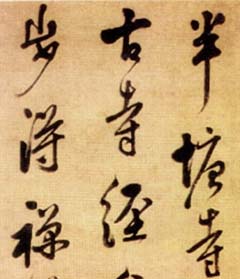 半塘寺
古寺經
步得禪